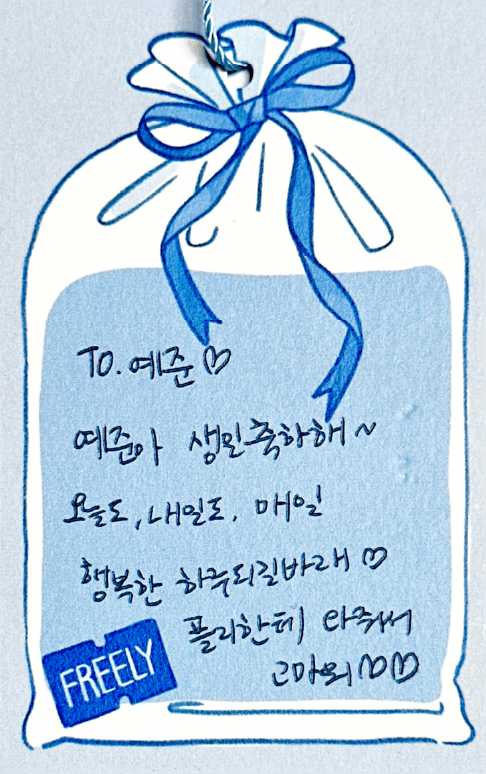 TO. 예준♡
예준아 생일축하해~
오늘도, 내일도, 매일
행복한 하루되길바래♡
플리한테 와줘서
고마워♡♡
FREELY